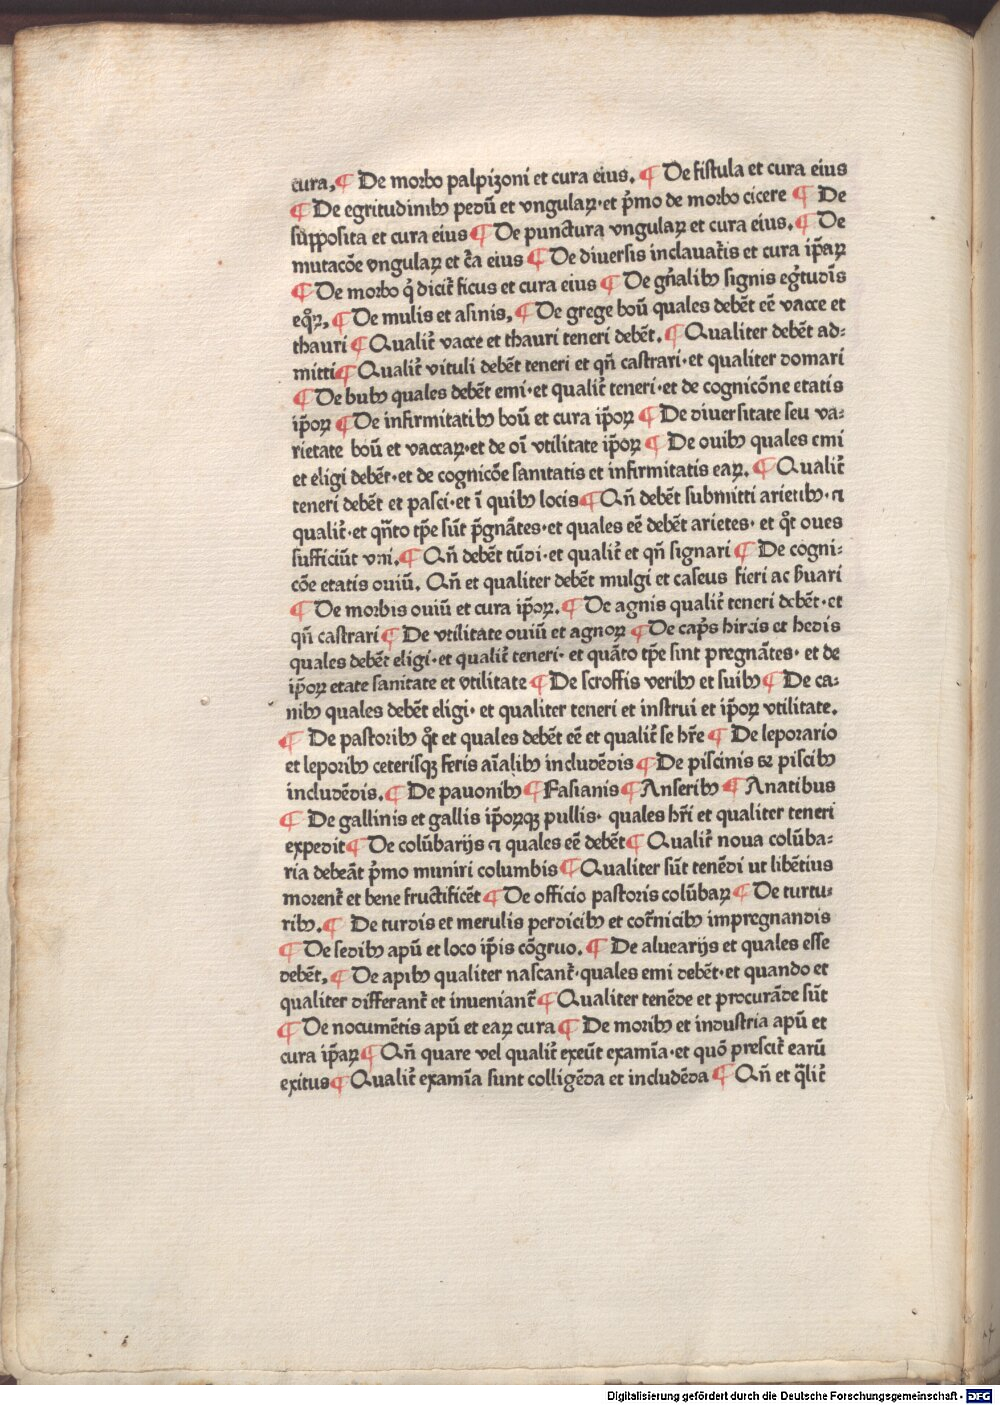 cura, ¶ De morbo palpizoni et cura eius. ¶ De fistula et cura eius
¶ De egritudinibꝫ pedū et vngulaꝝ·et pͥmo de morbo cicere ¶ De
supposita et cura eius ¶ De punctura vngulaꝝ et cura eius. ¶ De
mutacōe vngulaꝝ et cͬa eius ¶ De diuersis inclauat̄is et cura ip̄aꝝ
¶ De morbo q̇ dicit̄ ficus et cura eius ¶ De gn̄alibꝫ signis egͥtudīs
eqͦꝝ, ¶ De mulis et asinis, ¶ De grege boū quales debēt eē vacce et
thauri ¶ Qualit̄ vacce et thauri teneri debēt. ¶ Qualiter debēt ad⸗
mitti ¶ Qualit̄ vituli debēt teneri et qn̄ castrari·et qualiter domari
¶ De bubꝫ quales debēt emi·et qualit̄ teneri·et de cognicōne etatis
ip̄oꝝ ¶ De infirmitatibꝫ boū et cura ip̄oꝝ ¶ De diuersitate seu va⸗
rietate boū et vaccaꝝ·et de oī vtilitate ip̄oꝝ ¶ De ouibꝫ quales emi
et eligi debēt·et de cognicōe sanitatis et infirmitatis eaꝝ. ¶ Qualit̄
teneri debēt et pasci·et ī quibꝫ locis ¶ Qn̄ debēt submitti arietibꝫ·⁊
qualit̄·et qn̄to tp̄e sūt p̄gnātes·et quales eē debēt arietes· et qͦt oues
sufficiūt vni. ¶ Qn̄ debēt tūdi·et qualit̄ et qn̄ signari ¶ De cogni⸗
cōe etatis ouiū. Qn̄ et qualiter debēt mulgi et caseus fieri ac ẜuari
¶ De morbis ouiū et cura ip̄oꝝ. ¶ De agnis qualit̄ teneri debēt·et
qn̄ castrari ¶ De vtilitate ouiū et agnoꝝ ¶ De capͥs hircis et hedis
quales debēt eligi·et qualit̄ teneri· et quāto tp̄e sint pregnātes· et de
ip̄oꝝ etate sanitate et vtilitate ¶ De scroffis veribꝫ et suibꝫ ¶ De ca⸗
nibꝫ quales debēt eligi· et qualiter teneri et instrui et ip̄oꝝ vtilitate.
¶ De pastoribꝫ qͦt et quales debēt eē et qualit̄ se hr̄e ¶ De leporario
et leporibꝫ ceterisqꝫ feris aīalibꝫ includēdis ¶ De piscinis ⁊ piscibꝫ
includēdis. ¶ De pauonibꝫ ¶ Fasianis ¶ Anseribꝫ ¶ Anatibus
¶ De gallinis et gallis ip̄oꝝqꝫ pullis· quales hr̄i et qualiter teneri
expedit ¶ De colūbarijs ⁊ quales eē debēt ¶ Qualit̄ noua colūba⸗
ria debeāt pͥmo muniri columbis ¶ Qualiter sūt tenēdi ut libētius
morent̄ et bene fructificēt ¶ De officio pastoris colūbaꝝ ¶ De turtu⸗
ribꝫ. ¶ De turdis et merulis perdicibꝫ et cot̄nicibꝫ impregnandis
¶ De sedibꝫ apū et loco ip̄is cōgruo. ¶ De aluearijs et quales esse
debēt, ¶ De apibꝫ qualiter nascant̄·quales emi debēt·et quando et
qualiter differant̄ et inueniant̄ ¶ Qualiter tenēde et procurāde sūt
¶ De nocumētis apū et eaꝝ cura ¶ De moribꝫ et industria apū et
cura ip̄aꝝ ¶ Qn̄ quare vel qualit̄ exeūt examīa·et quō prescit̄ earū
exitus ¶ Qualit̄ examīa sunt colligēda et includēda ¶ Qn̄ et qͣlit̄
Digitalisierung gefördert durch die Deutsche Forschungsgemeinschaft - DFG